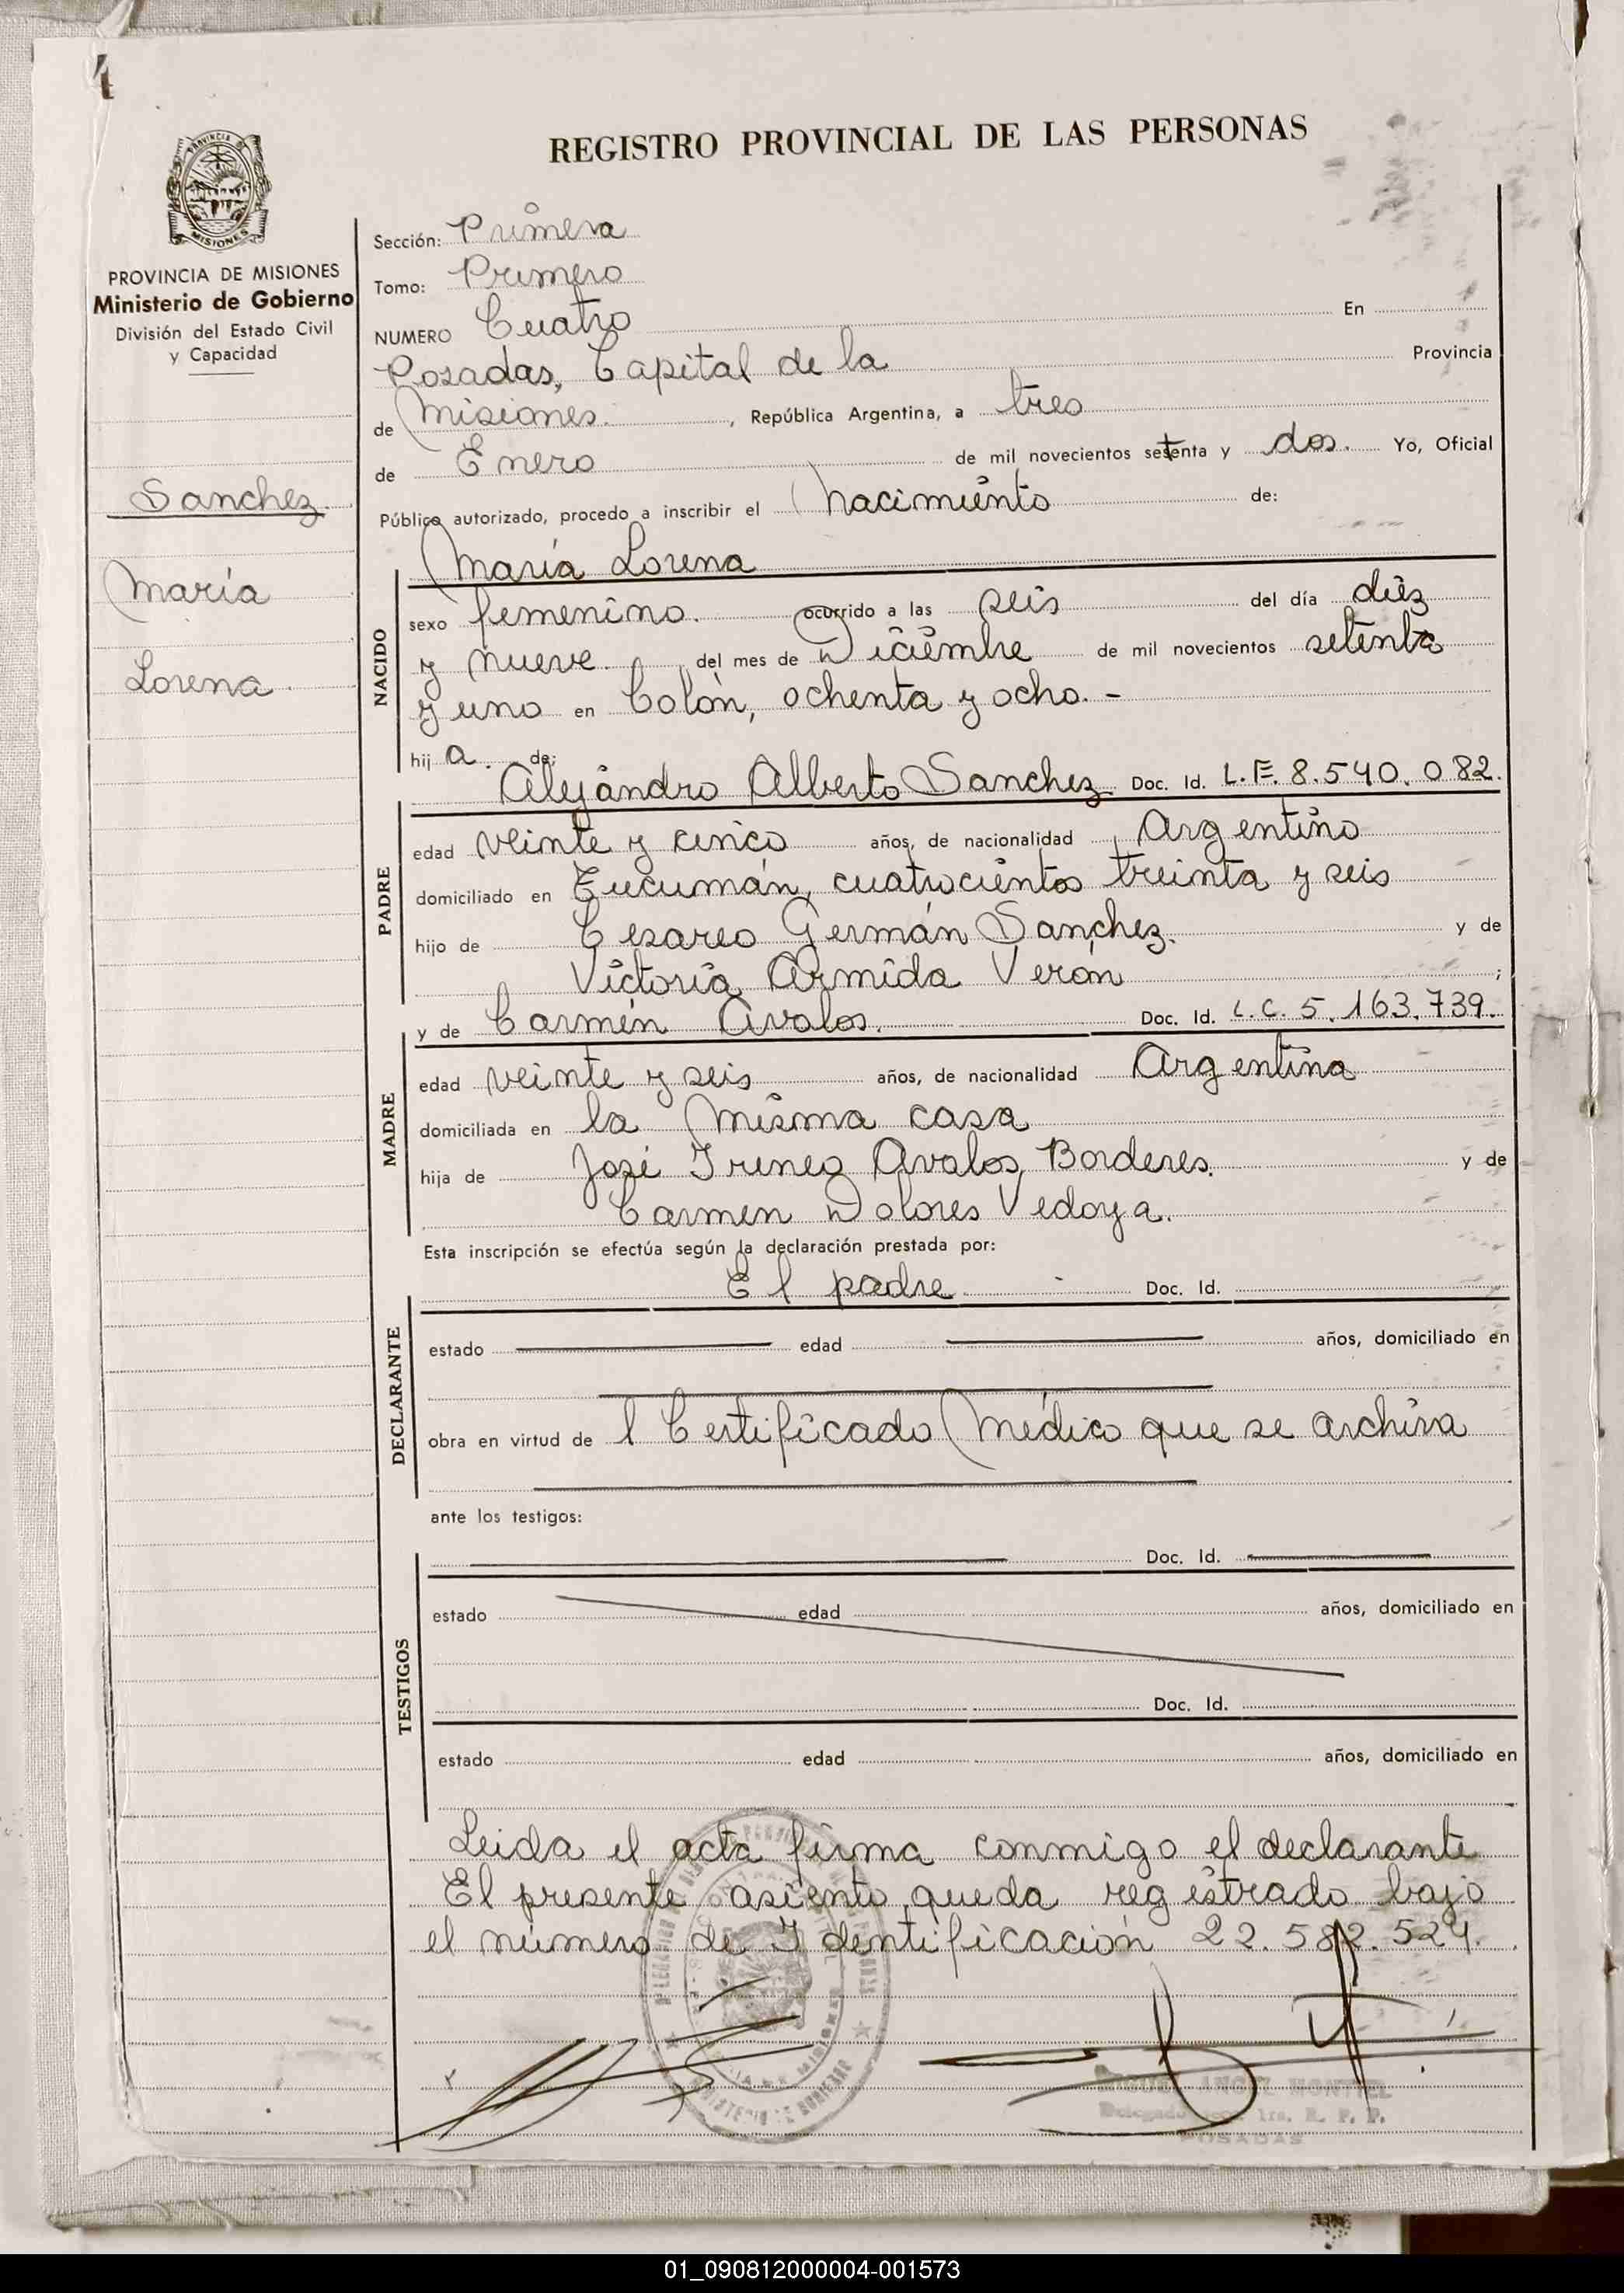 REGISTRO PROVINCIAL DE LAS PERSONAS
PROVINCIA DE MISIONES
Ministerio de Gobierno
División del Estado Civil
y Capacidad
Sanchez
María
Lorena
Sección: Primera
Tomo: Primero
NUMERO Cuatro En
Posadas, Capital de la Provincia
de Misiones. , República Argentina, a tres
de Enero de mil novecientos setenta y dos. Yo, Oficial
Público autorizado, procedo a inscribir el Nacimiento de:
María Lorena
NACIDO
sexo femenino. ocurrido a las seis del día diez
y nueve. del mes de Diciembre de mil novecientos setenta
y uno en Colón, ochenta y ocho. -
hij a. de:
Alejandro Alberto Sanchez. Doc. Id. L.E. 8.540.082.
PADRE
edad veinte y cinco años, de nacionalidad Argentino
domiciliado en Tucumán, cuatrocientos treinta y seis
hijo de Cesareo Germán Sanchez. y de
Victoria Armida Verón ;
y de Carmen Avalos. Doc. Id. L.C. 5.163.739.
MADRE
edad veinte y seis años, de nacionalidad Argentina
domiciliada en la misma casa
hija de José Ireneo Avalos Borderes. y de
Carmen Dolores Vedoya.
Esta inscripción se efectúa según la declaración prestada por:
El padre Doc. Id.
DECLARANTE
estado edad años, domiciliado en
obra en virtud de l Certificado Médico que se archiva
ante los testigos:
Doc. Id.
TESTIGOS
estado edad años, domiciliado en
Doc. Id.
estado edad años, domiciliado en
Leida el acta firma conmigo el declarante
El presente asiento queda registrado bajo
el número de Identificación 22.582.524.
MIGUEL ANGEL MONTIEL
Delegado Secc. 1ra. R. P. P.
POSADAS
01_090812000004-001573